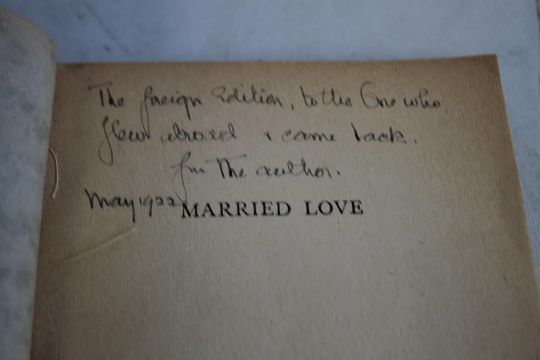 The foreign Edition, to the One who
flew abroad & came back.
fm The author.
May 1922
MARRIED LOVE